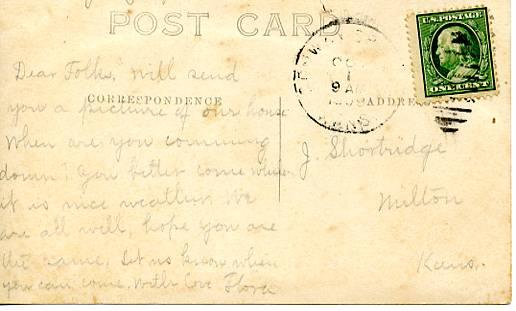 POST CARD
U.S. POSTAGE
ONE CENT
OC
1
9 A
KANS
CORRESPONDENCE
ADDRESS
Dear Folks, will send
you a picture of our house
When are you comming
down? You better come while
it is nice weather. We
are all well, hope you are
the same, Let us know when
you can come. With love Flora
J. Shortridge
Milton
Kans.